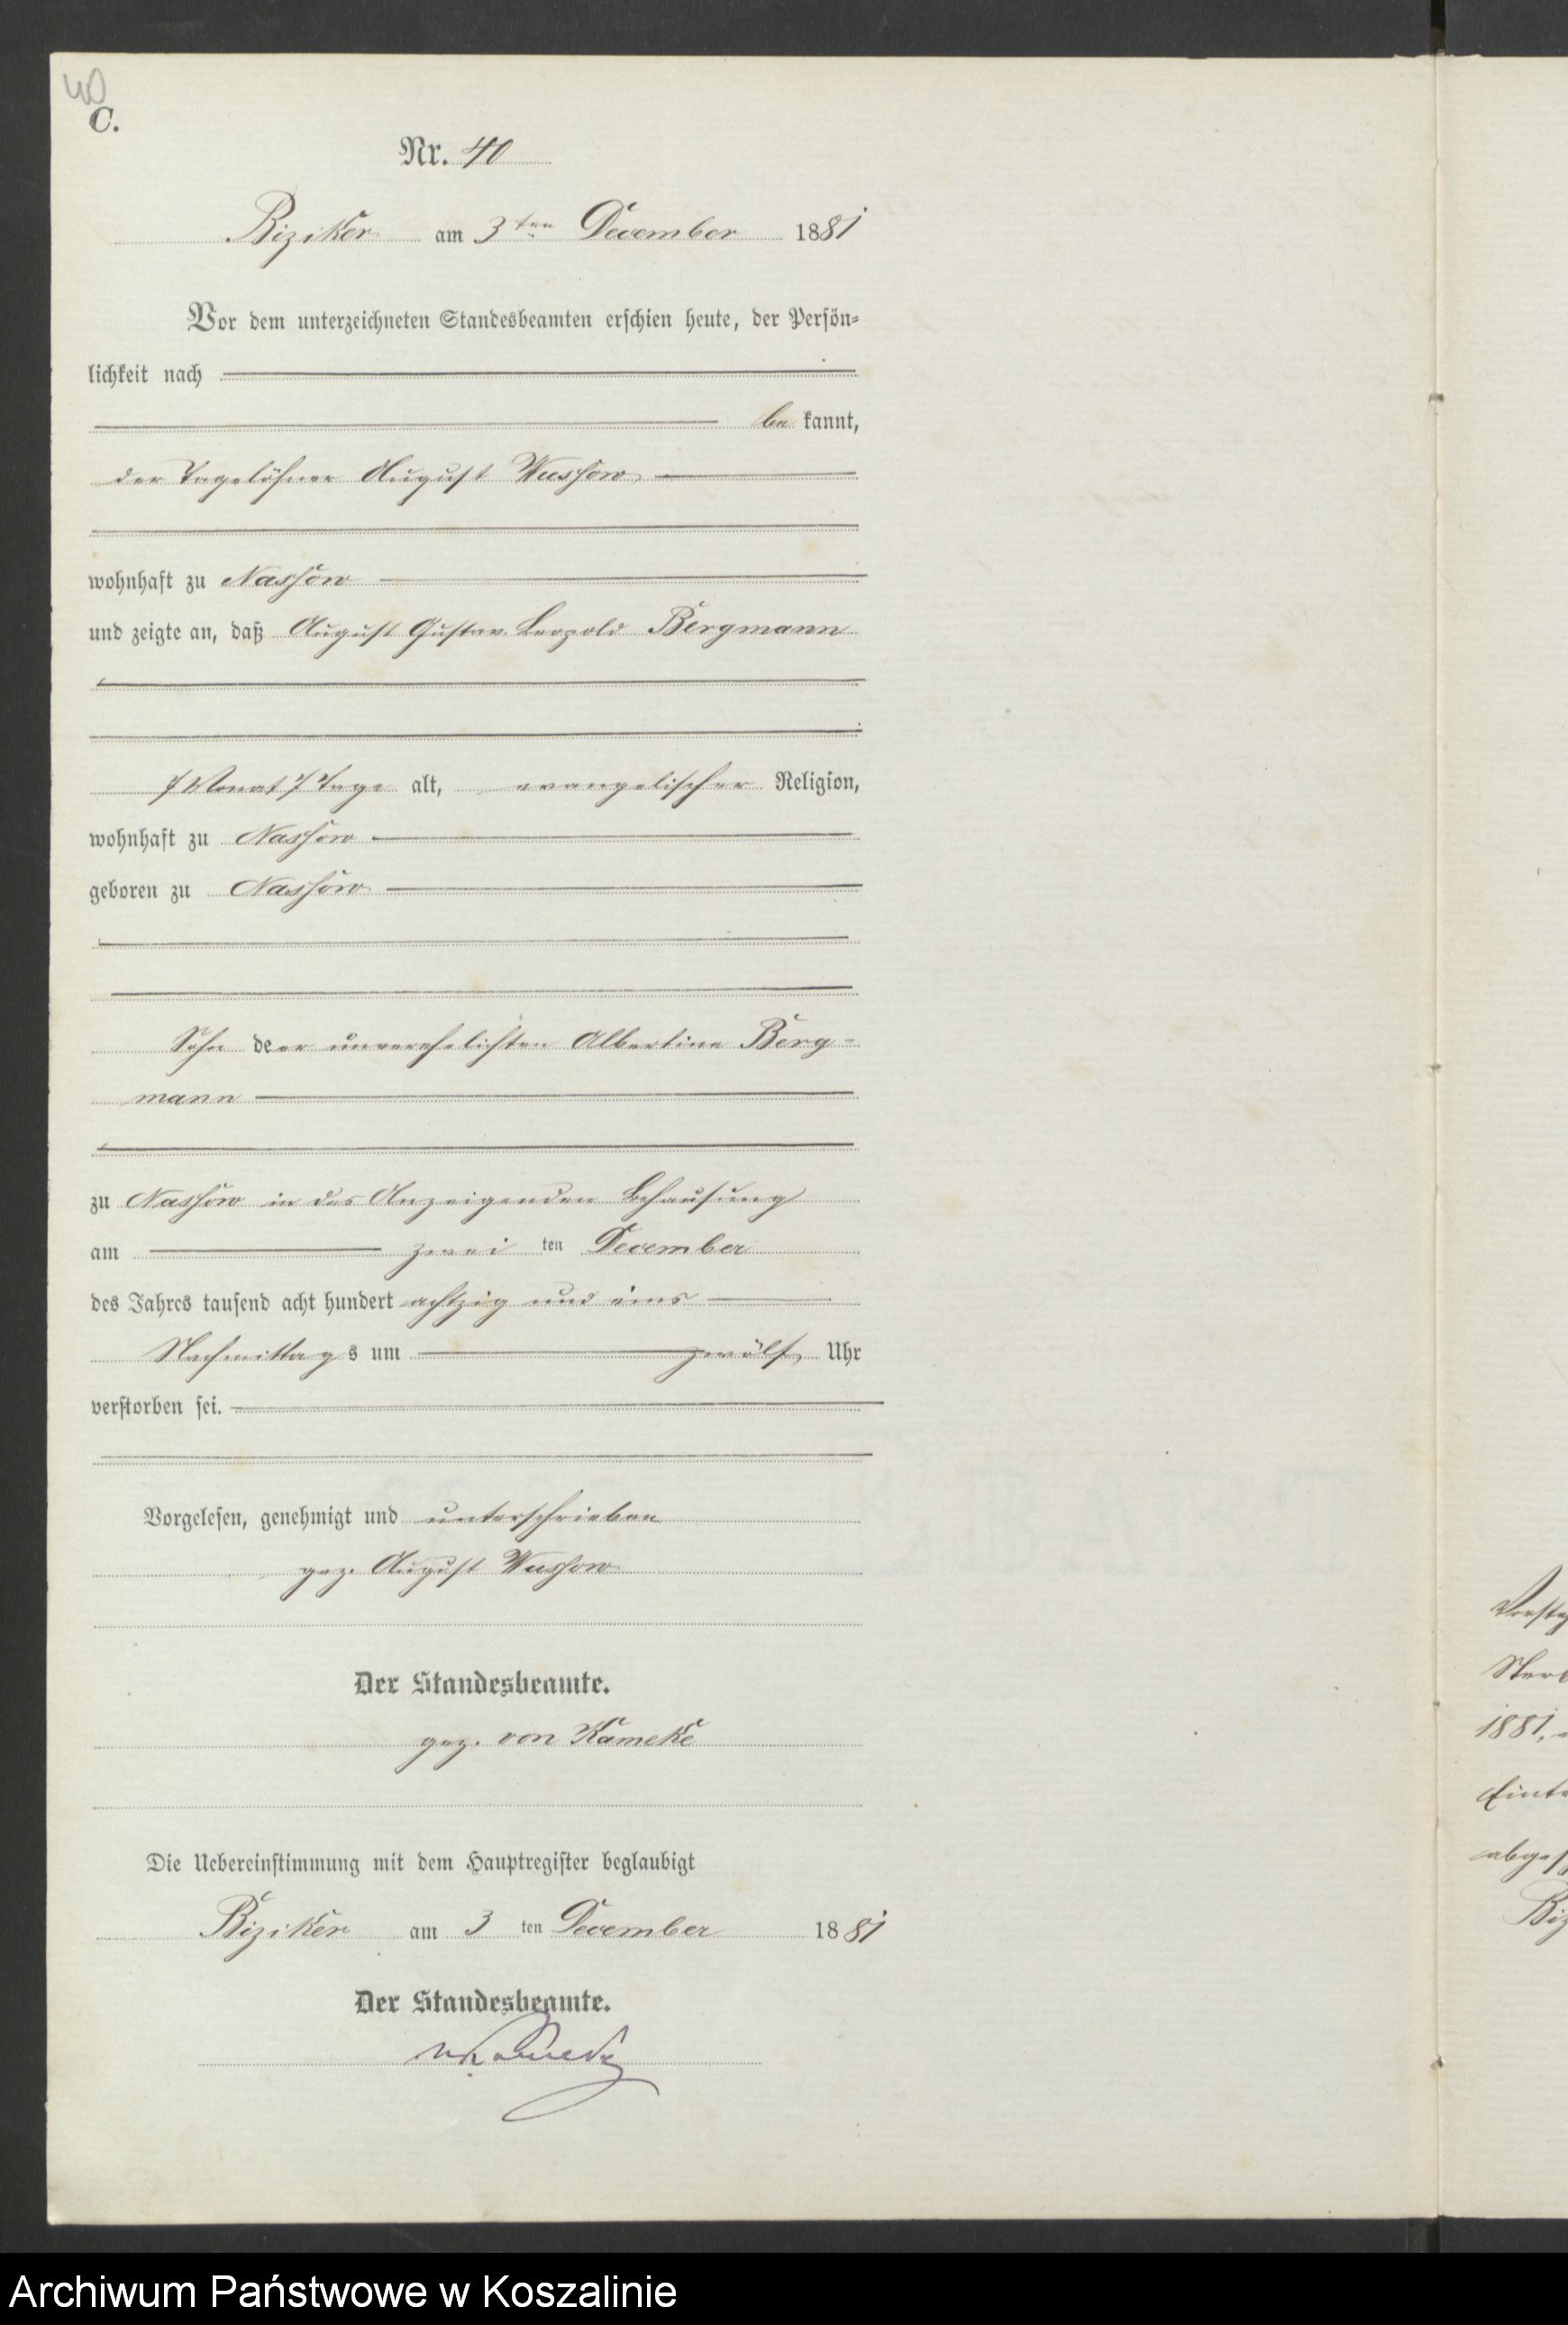 40
C.
Nr. 40
Biziker am 3ten December 1881
Vor dem unterzeichneten Standesbeamten erschien heute, der Persön-
lichkeit nach
be kannt,
der Tagelöhner August Wussow
wohnhaft zu Nassow
und zeigte an, daß August Gustav Leopold Bergmann
Monat Tage alt, evangelischer Religion,
wohnhaft zu Nassow
geboren zu Nassow
Sohn deer unverehelichten Albertine Berg-
mann
zu Nassow in des Anzeigenden Behausung
am zwei ten December
des Jahres tausend acht hundert achtzig und eins
Nachmittags um zwölf Uhr
verstorben sei.
Vorgelesen, genehmigt und unterschrieben
gez. August Wussow
Der Standesbeamte.
gez. von Kameke
Die Uebereinstimmung mit dem Hauptregister beglaubigt
Biziker am 3 ten December 1881
Der Standesbeamte.
vKameke
1881,
Archiwum Państwowe w Koszalinie